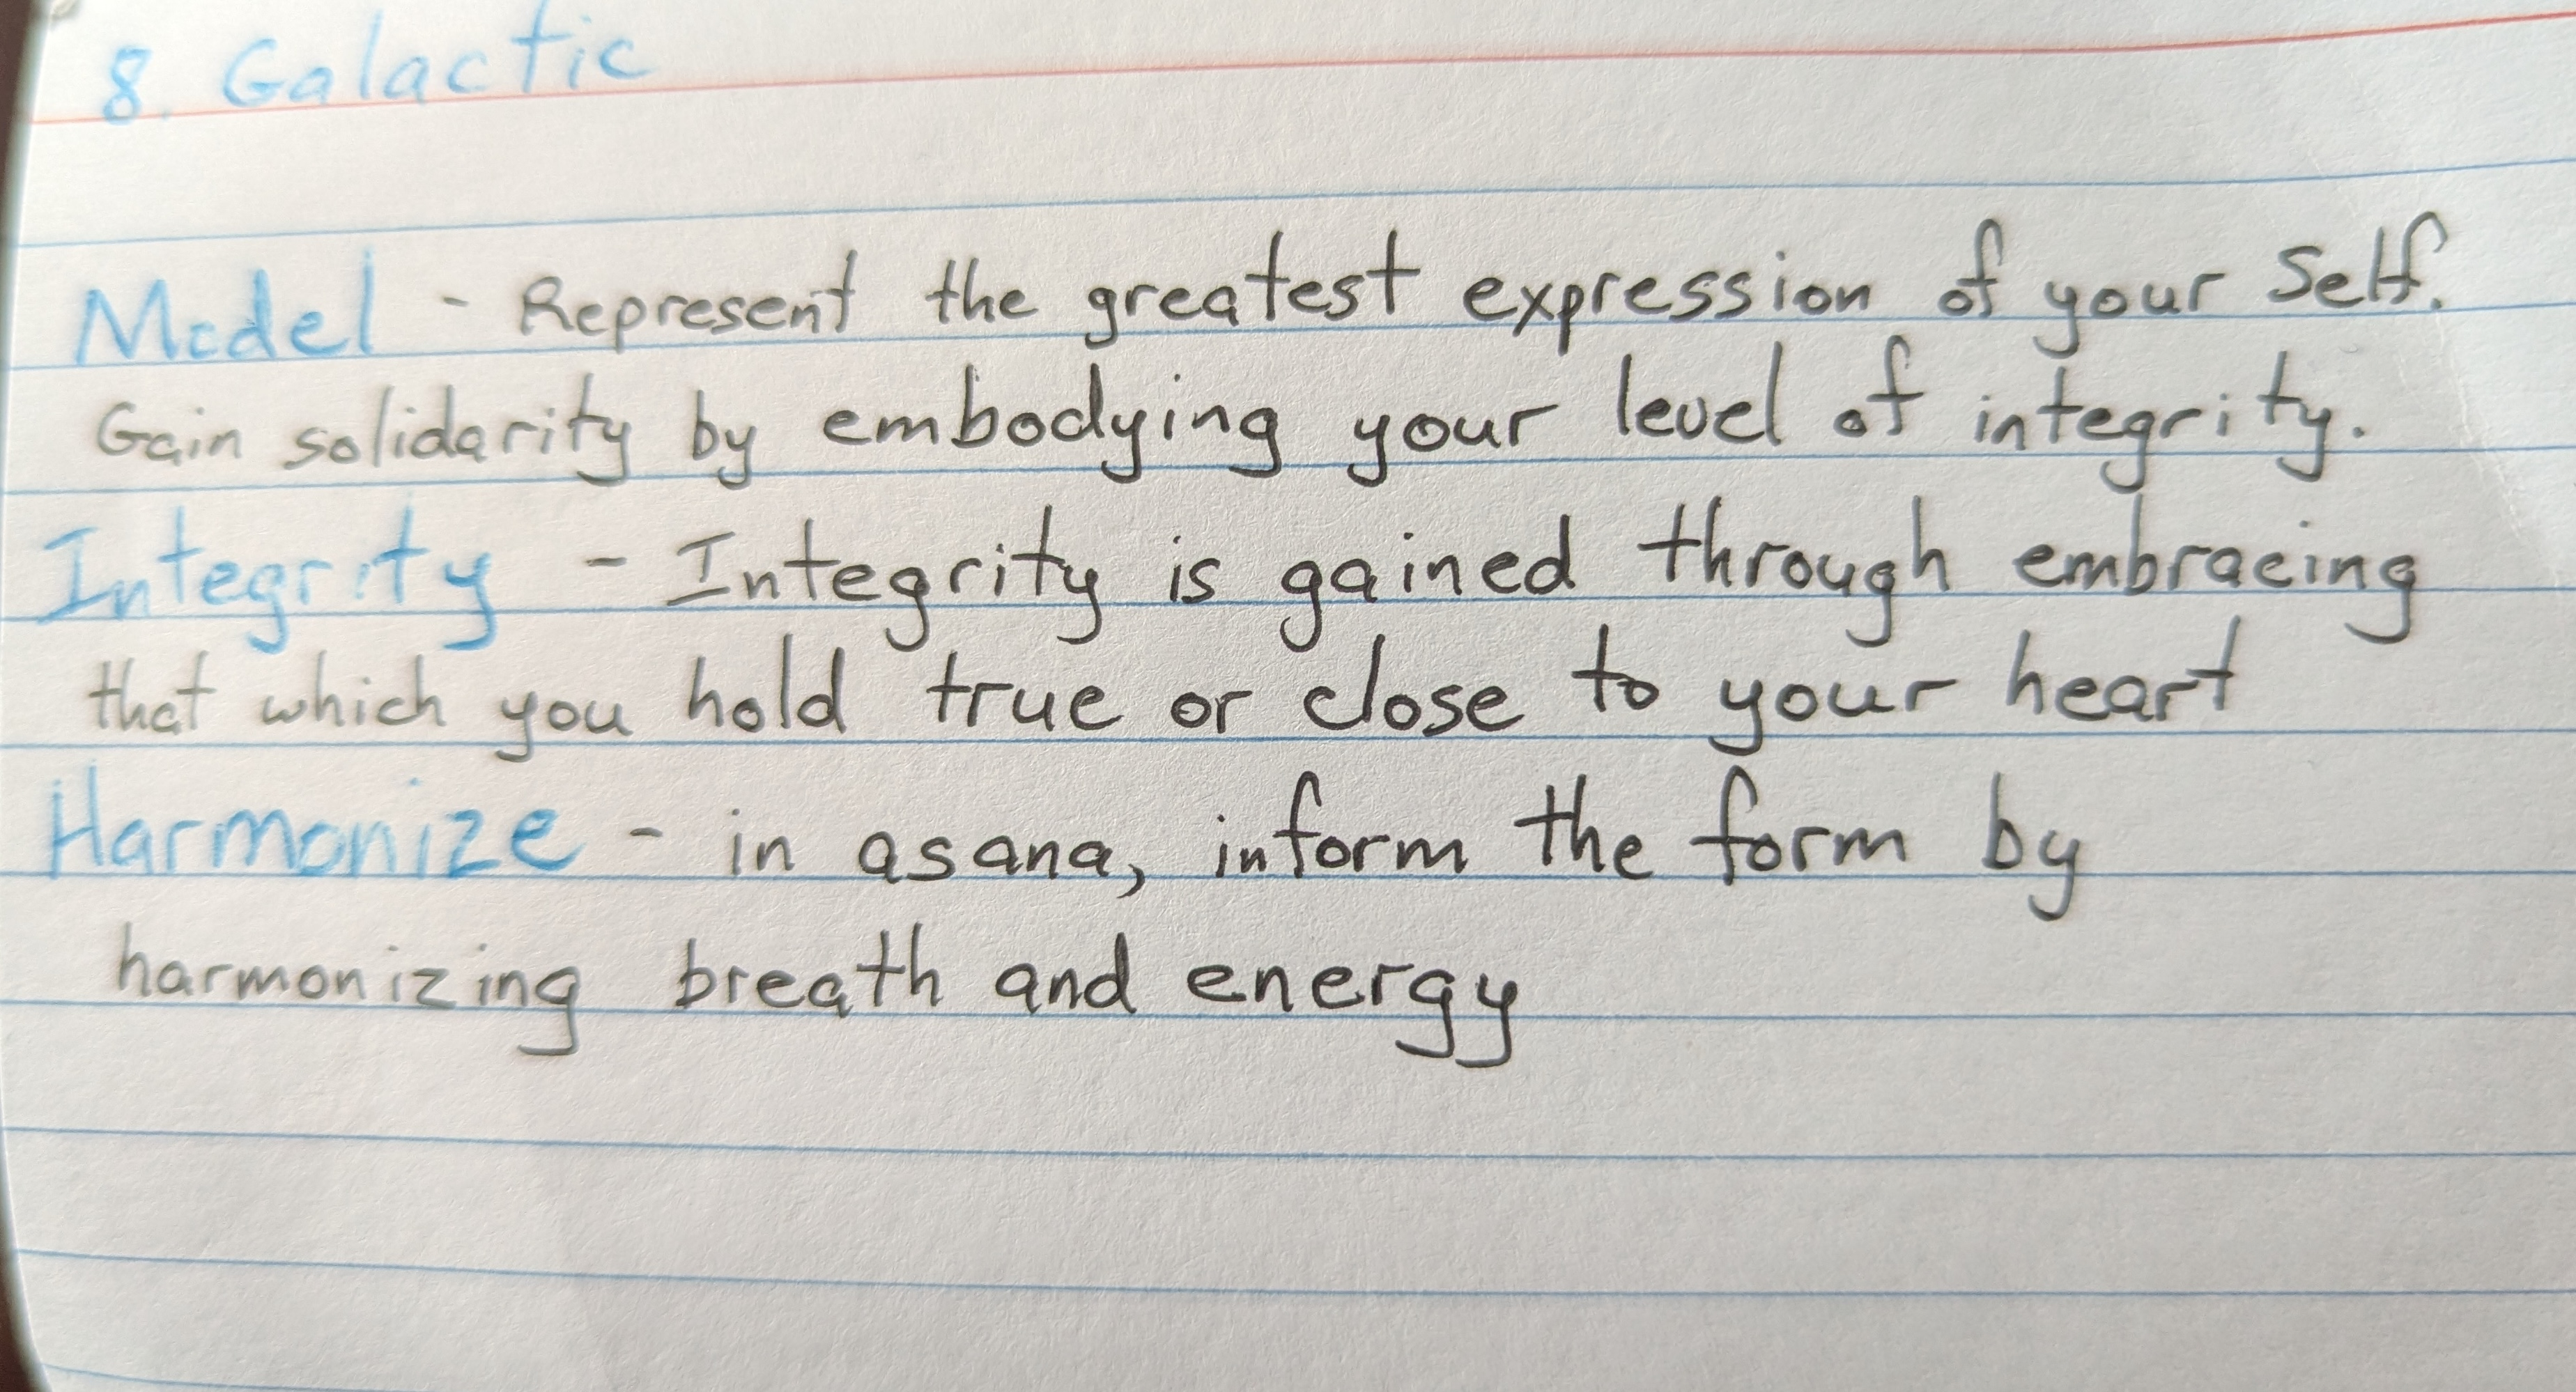 8. Galactic
Model - Represent the greatest expression of your Self.
Gain solidarity by embodying your level of integrity.
Integrity - Integrity is gained through embracing
that which you hold true or close to your heart
Harmonize - in asana, inform the form by
harmonizing breath and energy